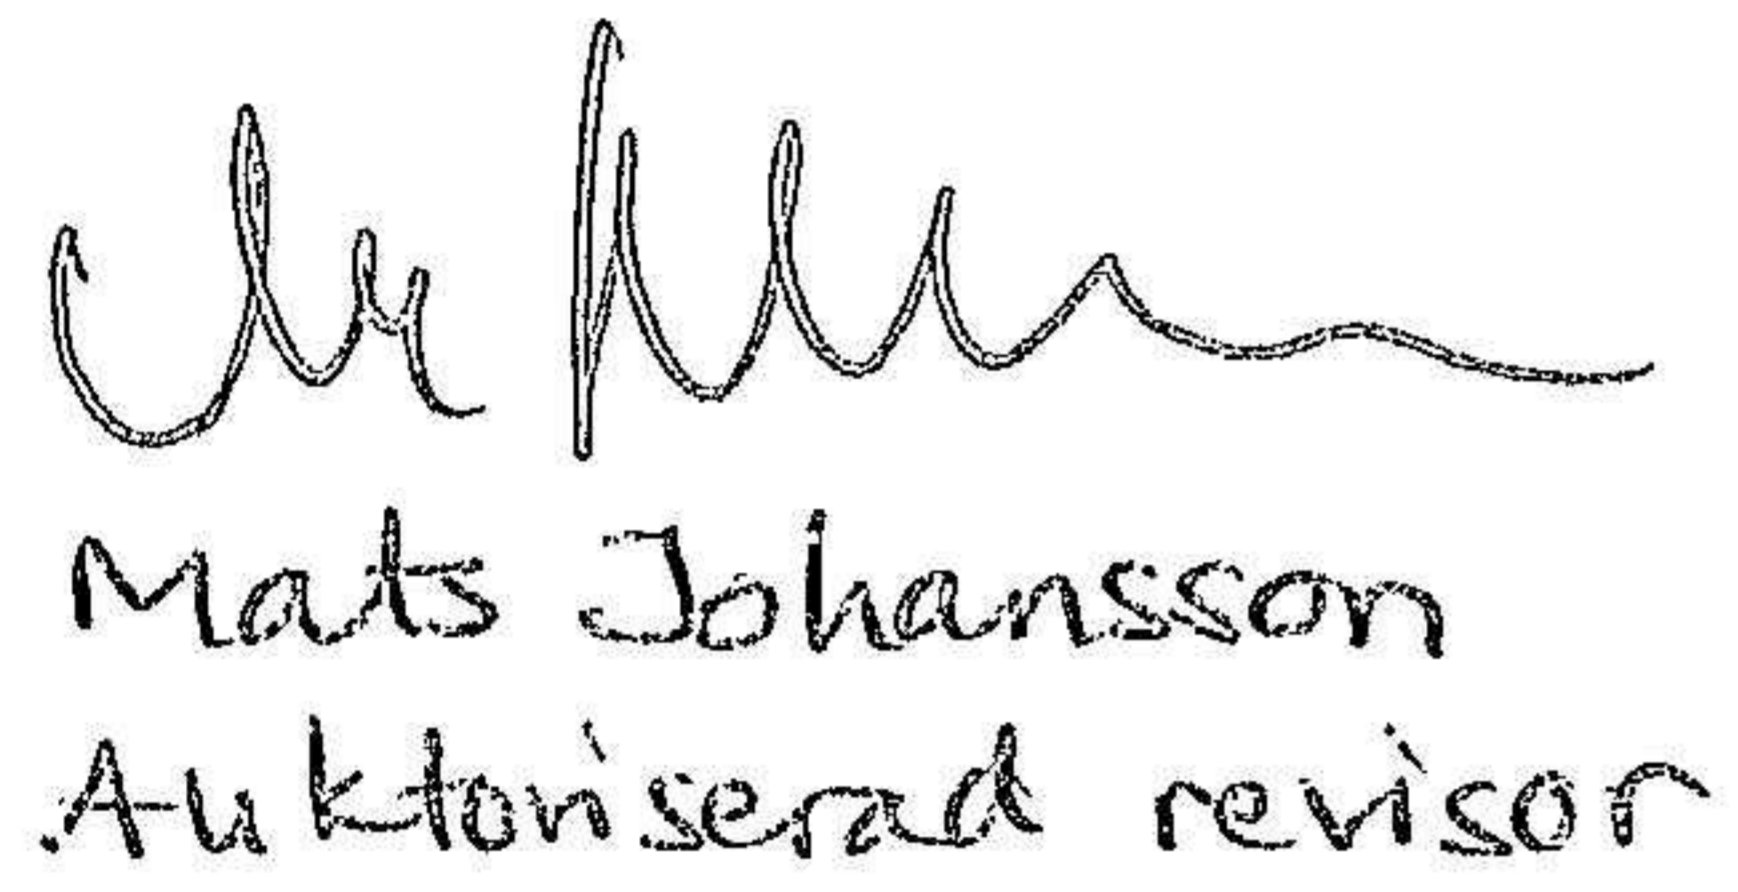 Mats Johansson
Auktoriserad revisor